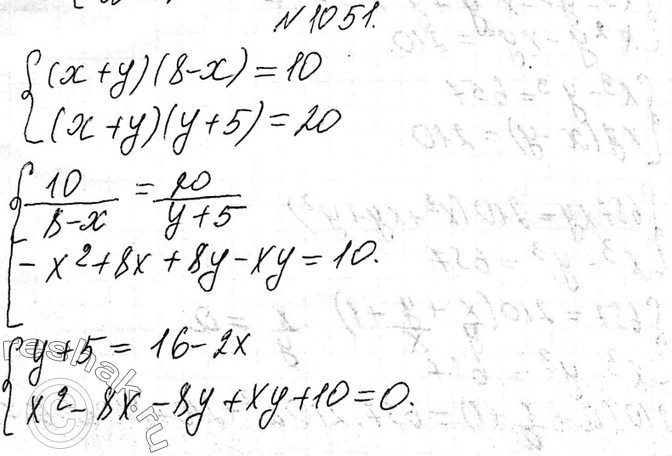 N 1051.
(x+y)(8-x)=10
(x+y)(y+5)=20
10/8-x = 20/y+5
-x²+8x+8y-xy=10.
y+5=16-2x
x²-8x-8y+xy+10=0.
reshak.ru